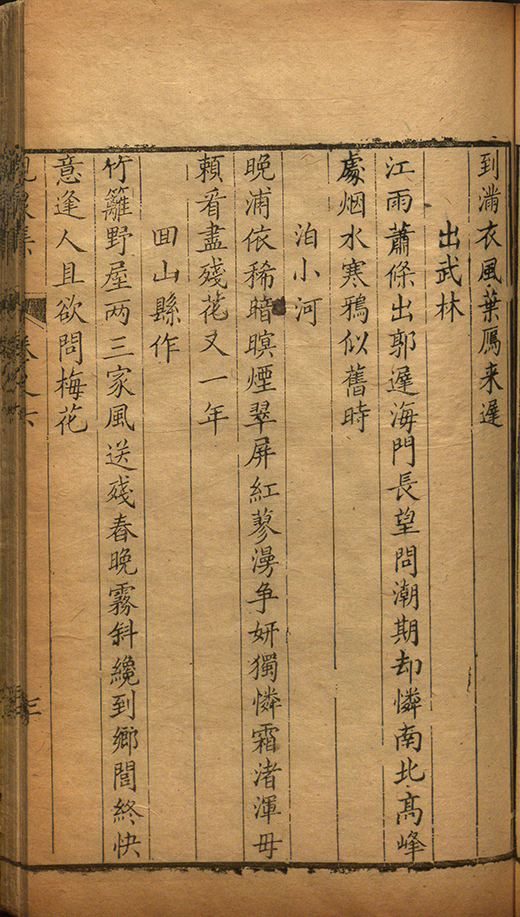 到滿衣風葉鴈来遲
出武林
江雨蕭條出郭遲海門長望問潮期却憐南北高峰
處烟水寒鴉似舊時
泊小河
晚浦依稀暗暝煙翠屏紅蓼漫争妍獨憐霜渚渾毋
頼看盡殘花又一年
回山縣作
竹籬野屋两三家風送殘春晚霧斜纔到鄉閭終快
意逢人且欲問梅花